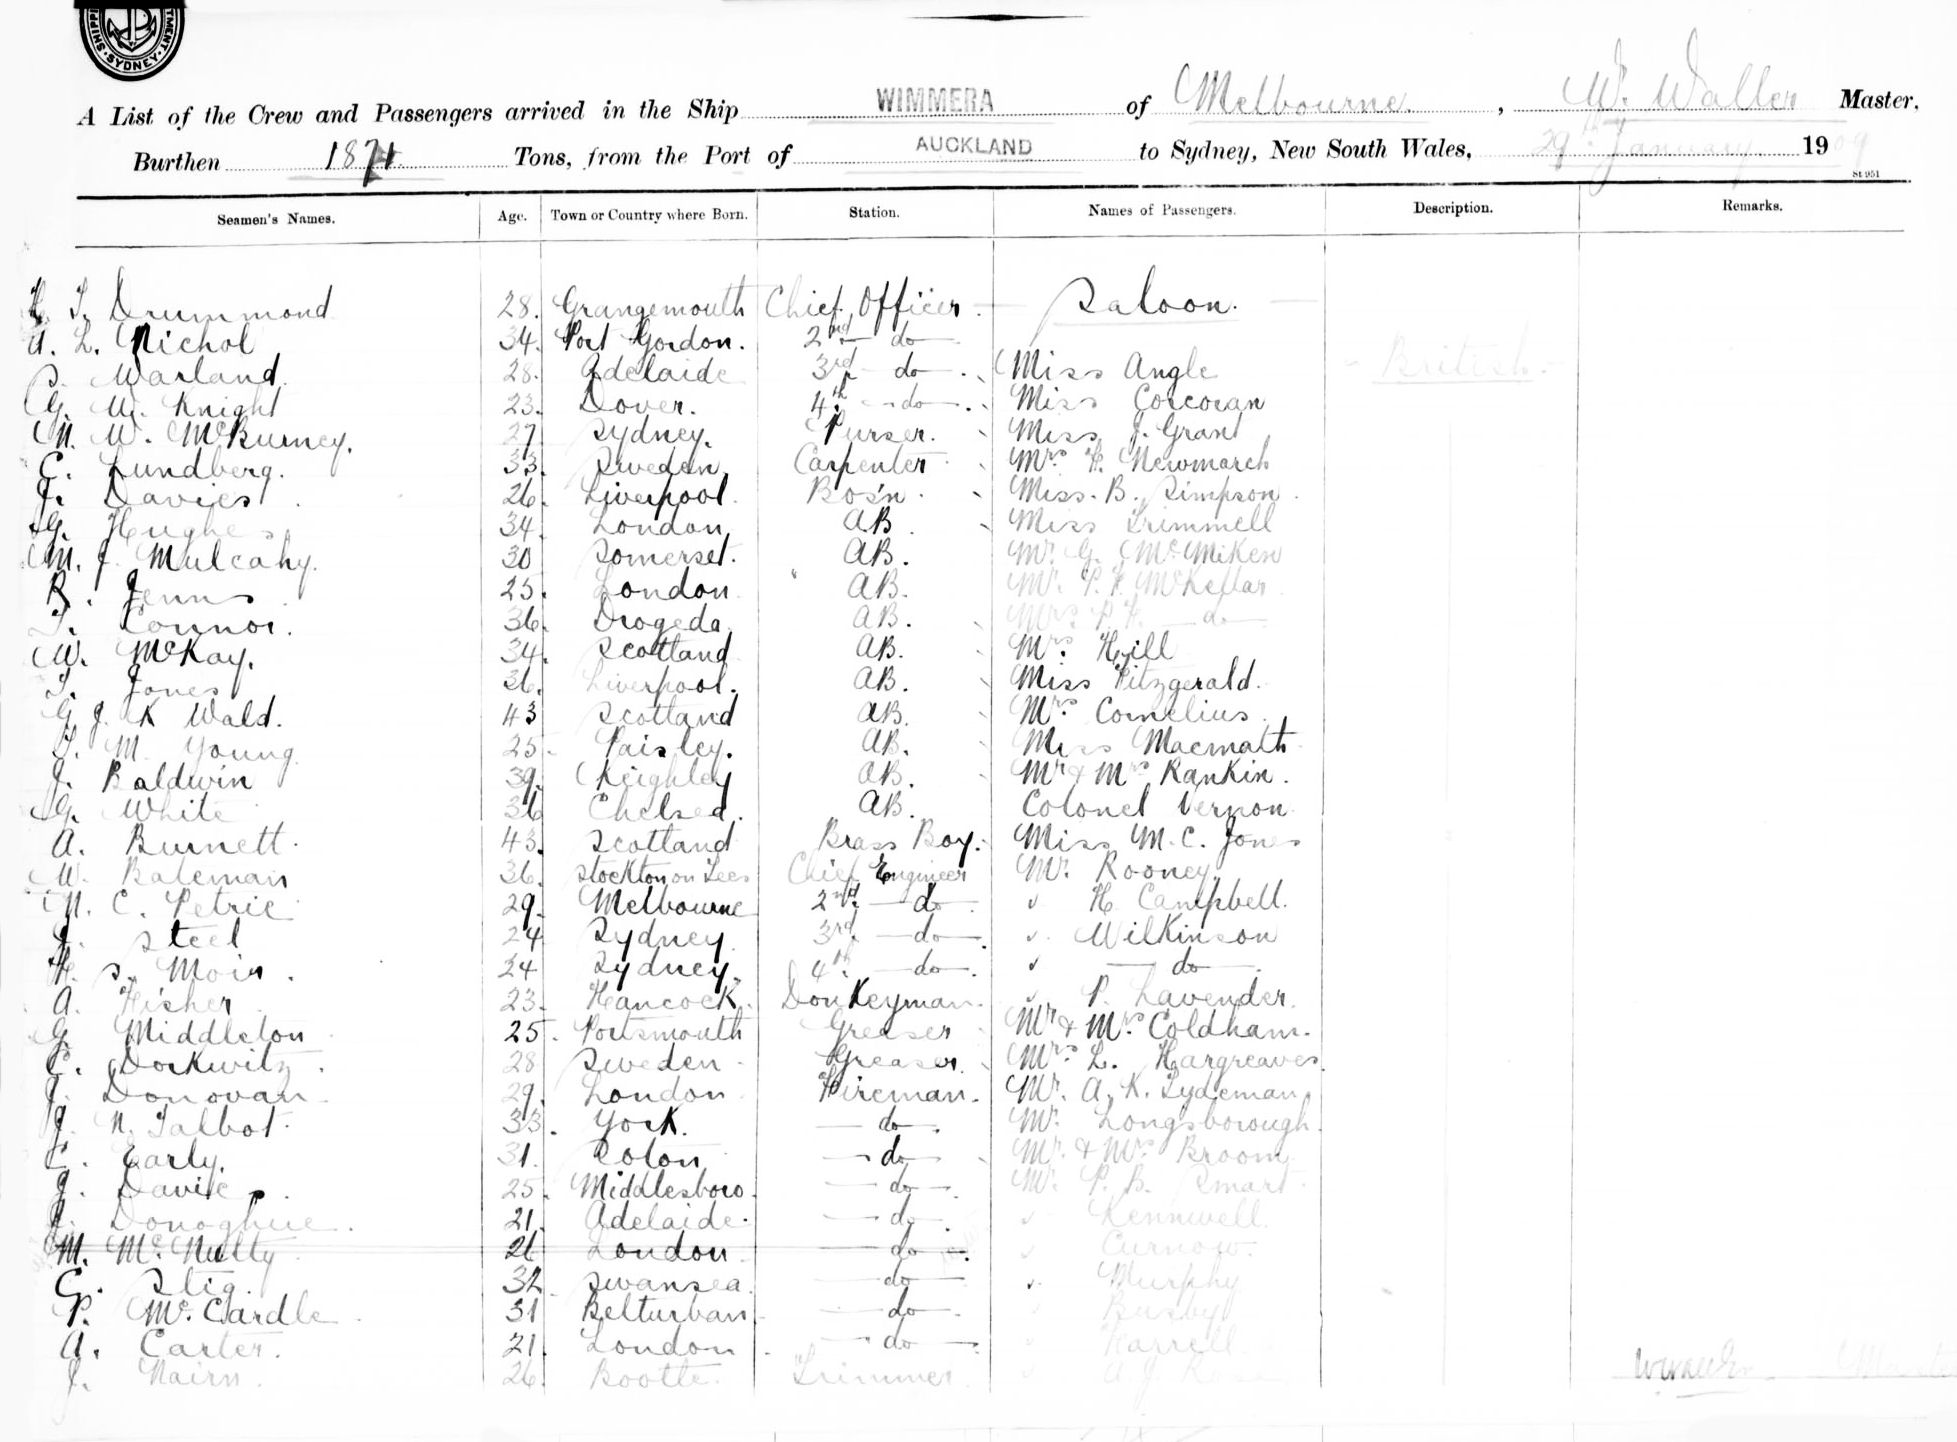 SYDNEY
A List of the Crew and Passengers arrived in the Ship WIMMERA of Melbourne, W. Waller Master,
Burthen 1871 Tons, from the Port of AUCKLAND to Sydney, New South Wales, 29th January 1909
St 951
Seamen's Names. Age. Town or Country where Born. Station. Names of Passengers. Description. Remarks.
H. T. Drummond 28. Grangemouth Chief Officer — Saloon. —
A. L. Nichol 34. Port Gordon. 2nd — do —
S. Warland 28. Adelaide 3rd — do — Miss Angle British
G. W. Knight 23. Dover. 4th — do — Miss Corcoran
N. W. McBurney. 27 Sydney. Purser. Miss J. Grant
C. Lundberg. 33. Sweden Carpenter Mrs. H. Newmarch
J. Davies 26. Liverpool. Bos'n. Miss. B. Simpson
G. Hughes 34. London AB. Miss Trimmell
M. J. Mulcahy. 30 Somerset. AB. Mr. G. McMiken
R. Jenns 25. London AB. Mr. P. F. McKellar
T. Connor. 36. Drogeda. AB. Mrs. P. F. — do —
W. McKay. 34. Scotland AB. Mrs. Hill
T. Jones 36. Liverpool. AB. Miss Fitzgerald.
G. J. K Wald. 43 Scotland AB. Mrs. Cornelius.
T. M. Young 25. Paisley. AB. Miss Macmath
J. Baldwin 39. Keighley AB. Mr & Mrs Rankin.
G. White 36 Chelsea. AB. Colonel Vernon
A. Burnett. 43. Scotland Brass Boy. Miss M. C. Jones
W. Bateman 36. Stockton on Tees Chief Engineer Mr. Rooney.
N. C. Petrie 29. Melbourne 2nd. — do H. Campbell.
J. Steel 24 Sydney 3rd. — do — Wilkinson
H. S. Moir. 24 Sydney. 4th. — do — — do —
A. Fisher 23. Hancock. Donkeyman. P. Lavender.
G. Middleton 25. Portsmouth Greaser Mr & Mrs. Coldham.
C. Dorkwitz. 28 Sweden Greaser. Mrs. L. Hargreaves
J. Donovan 29. London Fireman. Mr. A. K. Tydeman
J. N. Talbot. 33. York. — do —. Mr. Longsborough.
C. Early. 31. — do — Mr. & Mrs Broom
J. Davies. 25. Middlesboro. — do — Mr. P. B. Smart
Donoghue. 21. Adelaide. — do — Kennwell.
M. McNulty 26 London — do — Curnow.
C. Stig. 32 Swansea — do — Murphy
P. McCardle. 31 Belturban — do — Busby
A. Carter. 21. London — do — Harrell.
J. Nairn. 26. Bootle. Trimmer. A. J.